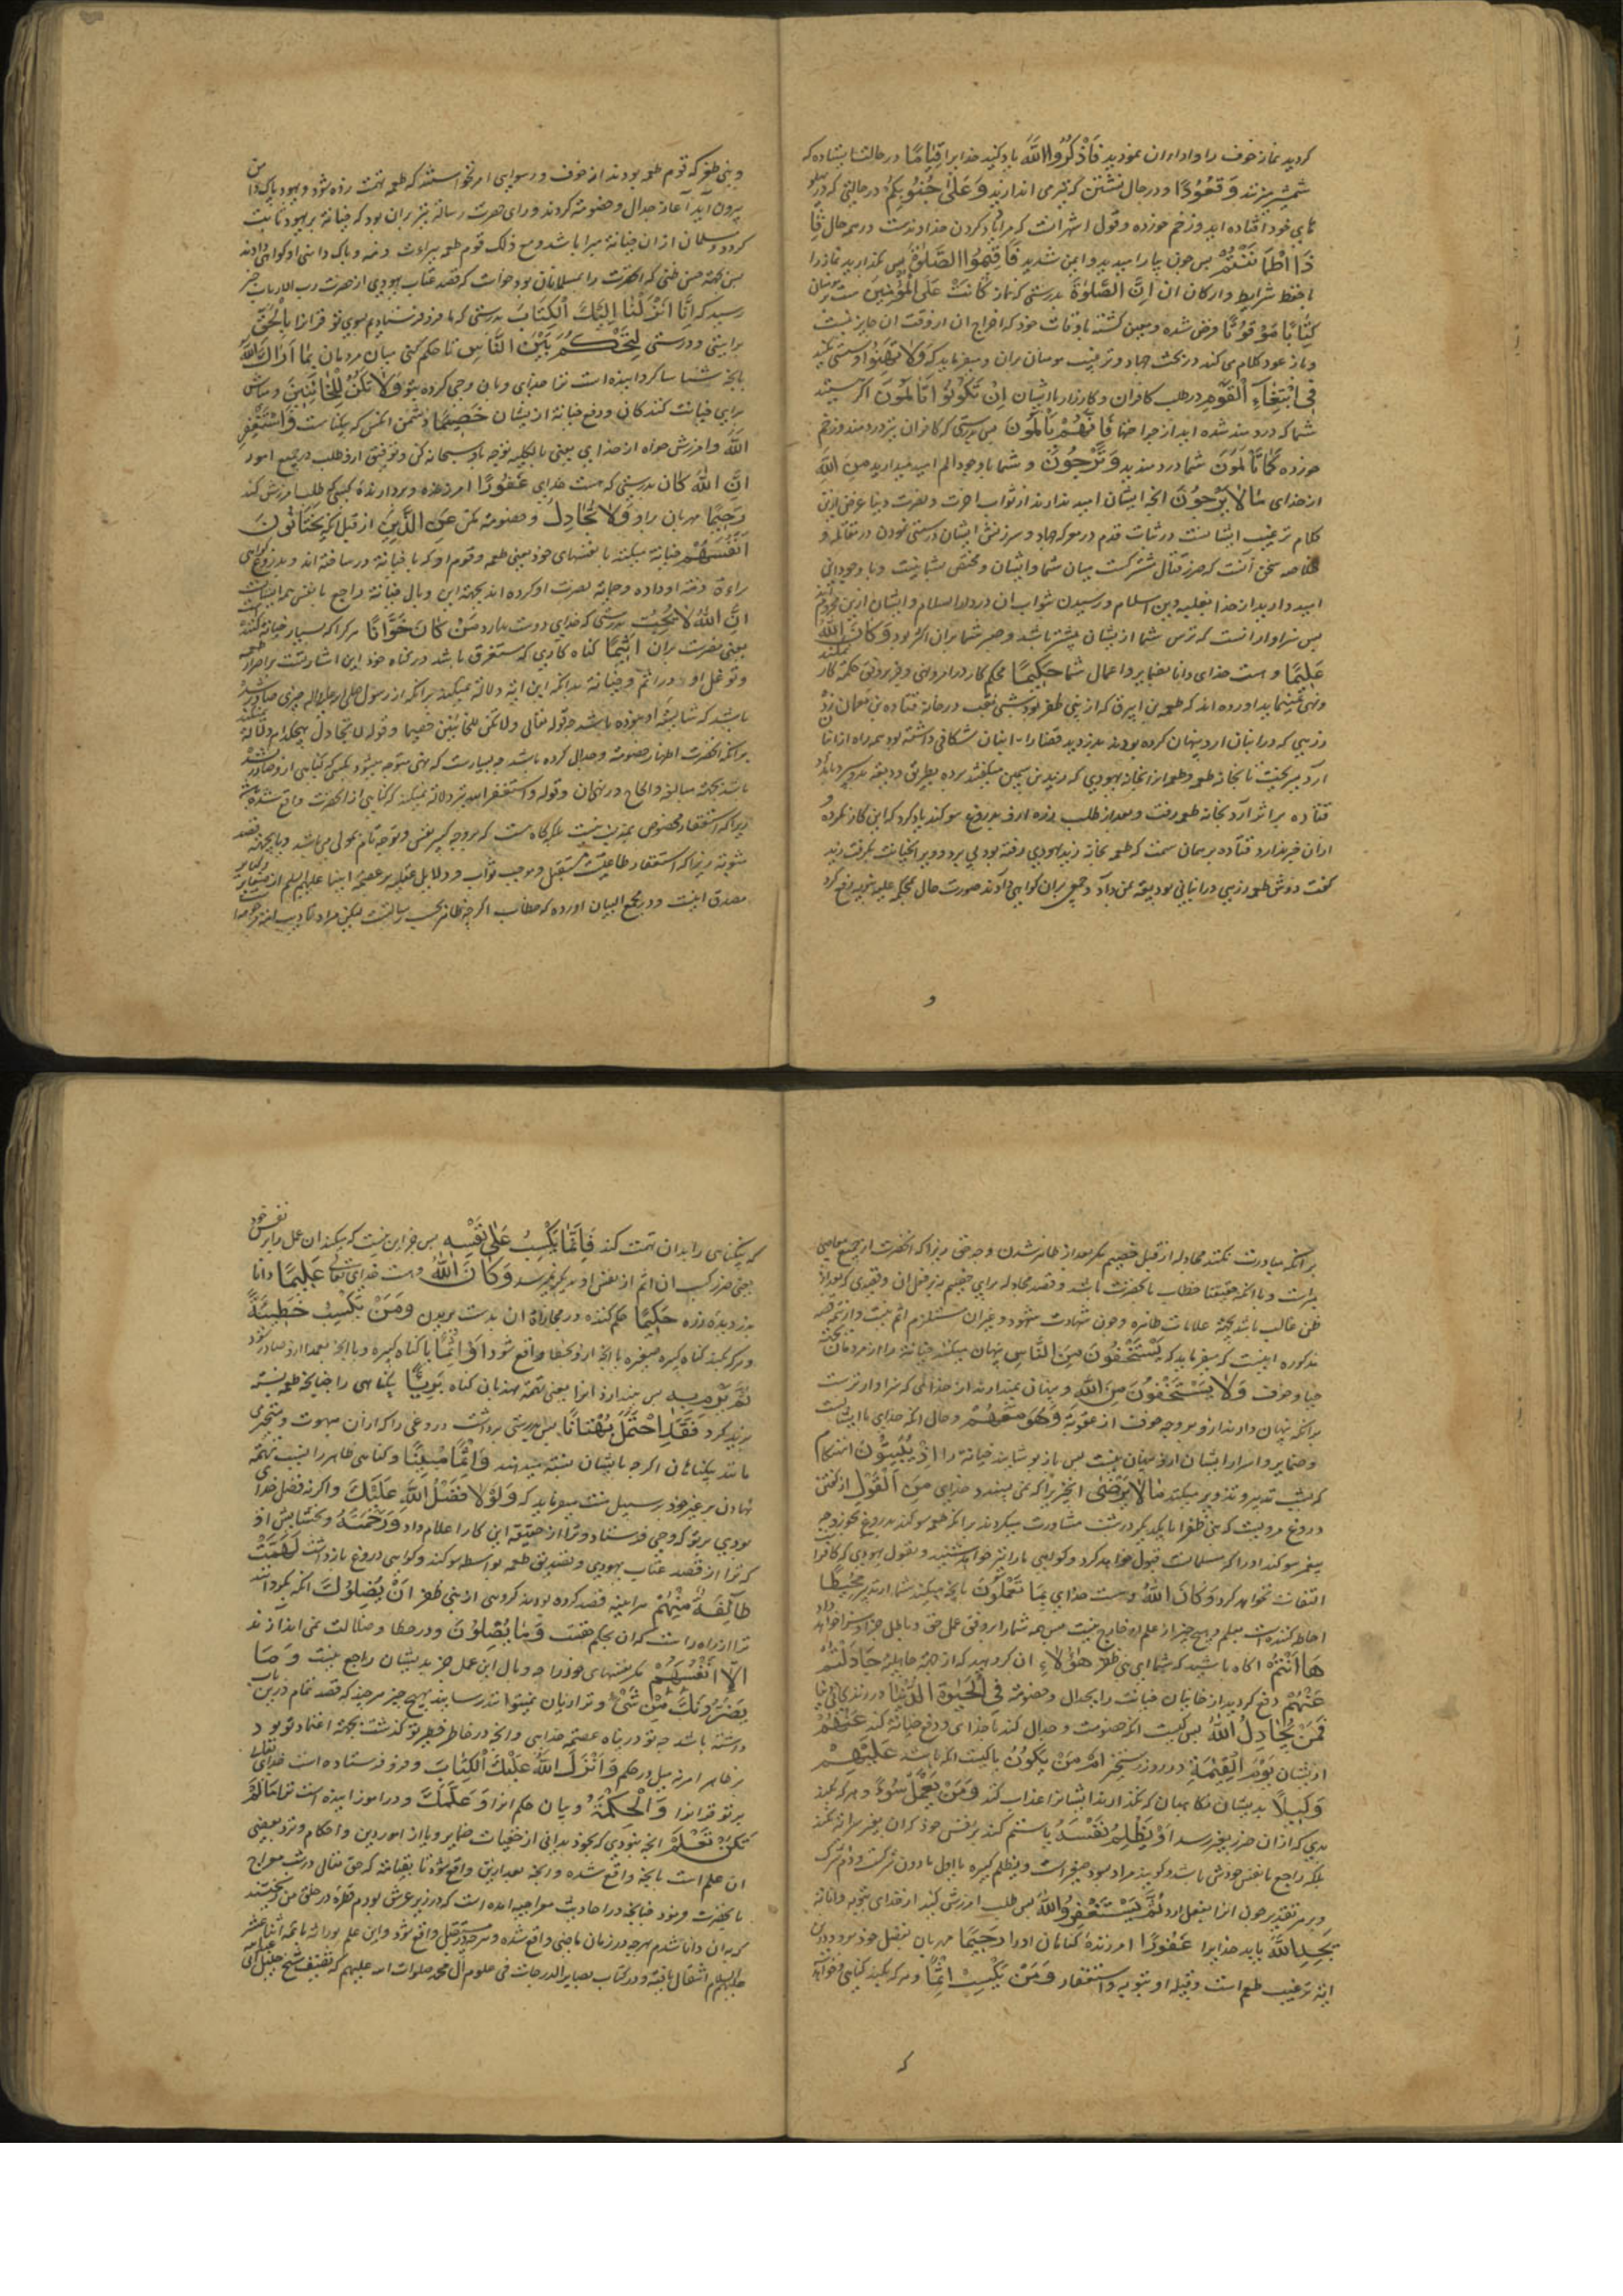 کردید نماز خوف را و اداء ان نمودید فَاذْكُرُوا اللّٰهَ یاد کنید خدایرا قِیَامًا در حالت ایستاده که
شمشیر میزنند وَقُعُودًا و در حال نشستن که تیر می اندازید وَعَلٰی جُنُوبِكُمْ در حالتی که در پهلو
های خود افتاده اید و زخم خورده و قول اشهر انست که مراد یاد کردن خداوندست در همه حال فَاِ
ذَا اطْمَأْنَنْتُمْ پس چون بیارامیدید و ایمن شدید فَاَقِیمُوا الصَّلٰوةَ پس بگذارید نماز را
با حفظ شرایط و ارکان ان اِنَّ الصَّلٰوةَ بدرستی که نماز كَانَتْ عَلَی الْمُؤْمِنِینَ هست بر مؤمنان
كِتَابًا مَوْقُوتًا فرض شده و معین کشته باوقات خود که اخراج ان از وقت ان جایز نیست
و باز عود کلام می کند در بحث جهاد و ترغیب مومنان بران و میفرماید که وَلَا تَهِنُوا و سستی مکنید
فِی ابْتِغَآءِ الْقَوْمِ در طلب کافران و کارزار با ایشان اِنْ تَكُونُوا تَأْلَمُونَ اگر هستید
شما که دردمند شده اید از جراحتها فَاِنَّهُمْ یَأْلَمُونَ پس بدرستی که کافران نیز دردمند و زخم
خورده كَمَا تَأْلَمُونَ شما دردمندید وَتَرْجُونَ و شما با وجود الم امید میدارید مِنَ اللّٰهِ
از خدای مَا لَا یَرْجُونَ انچه ایشان امید ندارند از ثواب اخرت و نصرت دنیا غرض ازین
کلام ترغیب ایشانست در ثبات قدم در معرکه جهاد و سرزنش ایشان در سستی نمودن در مقاتله و
خلاصه سخن آنست که ضرر قتال مشترکست میان شما و ایشان و مختص بشما نیست و با وجود این
امید دارید از خدا بغلبه دین اسلام و رسیدن ثواب ان در دارالسلام و ایشان ازین محروم اند
پس سزاوار انست که ترس شما از ایشان بیشتر نباشد و صبر شما بران اکثر بود وَكَانَ اللّٰهُ
عَلِیمًا و هست خدای دانا بضمایر و اعمال شما حَكِیمًا محکم کار در امر و نهی و فرمود
اورده اند که طعمه بن ابیرق که از بنی ظفر بود شبی نقب در خانه قتاده بن نعمان زد
و زرهی که در انبان ارد پنهان کرده بودند بدزدید قضا را انبان شکافی داشته بود همه راه ازان
آرد میریخت تا بخانه طعمه و طعمه ازانجا بخانه یهودی که زید بن سمین میگفتند برده بطریق ودیعه بدو سپرد
قتاده بر اثر آرد بخانه طعمه رفت و بعد از طلب زره او بدروغ سوکند یاد کرد که این کار نکرده
ازان خبر ندارد قتاده بر همان سمت که طعمه بخانه زید یهودی رفته بود پی برد و ویرا بخیانت بگرفت زید
کفت دوش طعمه زرهی در انبانی بودیعه بمن داد و جمعی بران کواهی دادند صورت حال بمحکمه علیه نبویه رفع کرد
و
و بنی ظفر که قوم طعمه بودند از خوف و رسوایی امر نخواستند که طعمه تهمت زده شود و یهود پاک دامن
بیرون آید آغاز جدال و خصومت کردند و رای حضرت رسالة نیز بران بود که خیانة بر یهود ثابت
کردد و مسلمان ازان خیانة مبرا باشد و مع ذلک قوم طعمه ببراءت ذمه و پاک دامنی او کواهی دادند
پس بجهة حسن ظنی که انحضرت را بمسلمانان بود خواست که قصد عتاب یهودی از حضرت رب الارباب خبر
رسید که اِنَّا اَنْزَلْنَا اِلَیْكَ الْكِتَابَ بدرستی که ما فرو فرستادیم بسوی تو قرانرا بِالْحَقِّ
براستی و درستی لِتَحْكُمَ بَیْنَ النَّاسِ تا حکم کنی میان مردمان بِمَا اَرَاكَ اللّٰهُ
بانچه شناسا کردانیده است ترا خدای و بان وحی کرده بتو وَلَا تَكُنْ لِلْخَائِنِینَ و مباش
برای خیانت کنندکان و دفع خیانة از ایشان خَصِیمًا دشمن انکس که بیکناست وَاسْتَغْفِرِ
اللّٰهَ و امرزش خواه از خدای یعنی بالکلیه توجه باو سبحانه کن و توفیق ازو طلب در جمیع امور
اِنَّ اللّٰهَ كَانَ بدرستی که هست خدای غَفُورًا امرزنده و بردارنده کسی که طلب امرزش کند
رَحِیمًا مهربان بر او وَلَا تُجَادِلْ و خصومت مکن عَنِ الَّذِینَ از قبل انکه یَخْتَانُونَ
اَنْفُسَهُمْ خیانة میکنند با نفسهای خود یعنی طعمه و قوم او که با خیانة در ساخته اند و بدروغ کواهی
براءة ذمة او داده و حمایة نصرت او کرده اند بجهة این وبال خیانة راجع با نفس هم ایشانست
اِنَّ اللّٰهَ لَا یُحِبُّ بدرستی که خدای دوست ندارد مَنْ كَانَ خَوَّانًا هرکرا که بسیار خیانة کننده
یعنی مصرست بران اَثِیمًا کناه کاری که مستغرق باشد در کناه خود این اشارتست بر اصرار طعمه
و توغل او در اثم و خیانة بدانکه این ایة دلالة نمیکند برانکه از رسول صلی الله علیه و اله چیزی صادر شده
باشد که شایسته او نبوده باشد چه قوله تعالی ولا تکن للخائنین خصیما و قوله لا تجادل هیچکدام دلالة نمیکند
برانکه انحضرت اظهار خصومة و جدالی کرده باشد چه بسیارست که نهی متوجه میشود بکسی که کناهی ازو صادر نشده
باشد بجهة مبالغه و الحاح در نهی ان و قوله واستغفر الله نیز دلالة نمیکند که کناهی از انحضرت واقع شده
زیرا که استغفار مخصوص بمذنب نیست بلکه کاه هست که بر وجه کسر نفس و توجه تام بمولی می باشد و یا بجهة قصد
مثوبة زیرا که استغفار طاعتی است مستقل و موجب ثواب و دلایل عقلیه بر عصمة انبیا علیهم السلم از صغایر و کبایر
مصدق اینست و در مجمع البیان اورده که خطاب اگر چه بظاهر بحضرت رسالتست لیکن مراد تادیب امة
برانکه مبادرت نکنند مجادله از قبل خصیم مگر بعد از ظاهر شدن وجه حق زیرا که انحضرت از جمیع معاصی
مبراست و یا انکه حقیقتا خطاب بانحضرت باشد و قصد مجادله برای خصیم نیز قبل ان و قیدی که بعد از
ظن غالب باشد بجهة علامات ظاهره و چون شهادت شهود و غیر ان مستلزم اثم نیست و از تتمه قصه
مذکوره اینست که میفرماید که یَسْتَخْفُونَ مِنَ النَّاسِ پنهان میکنند خیانة را از مردمان بجهة
حیا و خوف وَلَا یَسْتَخْفُونَ مِنَ اللّٰهِ و پنهان نمیدارند از خدائی که سزاوارترست
بدانکه پنهان دارند ازو بر وجه خوف از عقوبة وَهُوَ مَعَهُمْ و حال انکه خدای با ایشانست
و ضمایر و اسرار ایشان ازو پنهان نیست پس باز پوشانند خیانة را اِذْ یُبَیِّتُونَ انهنکام
که بشب تدبیر و تزویر میکنند مَا لَا یَرْضٰی انچیزیرا که نمی پسندد خدای مِنَ الْقَوْلِ از کفتن
دروغ مرویست که بنی ظفر با یکدیگر در شب مشاورت میکردند برانکه طعمه سوکند بدروغ بخورد چه
پیغمبر سوکند او را که مسلمانست قبول خواهد کرد و کواهی ما را نیز خواهد شنید و بقول یهودی که کافر است
التفات نخواهد کرد وَكَانَ اللّٰهُ و هست خدای بِمَا یَعْمَلُونَ بانچه میکنند شما از تدبیر مُحِیطًا
احاطه کننده است بعلم و هیچ چیز از علم او خارج نیست پس همه شما را بر وفق عمل حق و باطل جزا و سزا خواهد داد
هَا اَنْتُمْ اکاه باشید که شما ای بنی ظفر هٰؤُلَاءِ ان کروهید که از جهة جاهلیة جَادَلْتُمْ
عَنْهُمْ دفع کردید از خاینان خیانت را بجدال و خصومة فِی الْحَیٰوةِ الدُّنْیَا در زندکانی دنیا
فَمَنْ یُجَادِلُ اللّٰهَ پس کیست انکه خصومت و جدال کند با خدای و دفع خیانة کند عَنْهُمْ
از ایشان یَوْمَ الْقِیٰمَةِ در روز رستخیز اَمْ مَنْ یَكُونُ یا کیست انکه باشد عَلَیْهِمْ
وَكِیلًا بر ایشان نکاهبان که نکذارند ایشانرا عذاب کند وَمَنْ یَعْمَلْ سُوءً و هرکه بکند
بدی که ازان ضرر بغیر رسد اَوْ یَظْلِمْ نَفْسَهُ یا ستم کند بر نفس خود که ان بغیر سرایة نکند
بلکه راجع با نفس خودش باشد و کویند مراد بسوء صغیره است و بظلم کبیره یا باول ما دون شرکست و دوم شرک
و بر هر تقدیر چون انرا بفعل ارد ثُمَّ یَسْتَغْفِرِ اللّٰهَ پس طلب امرزش کند از خدای بتوبه و انابة
یَجِدِ اللّٰهَ یابد خدایرا غَفُورًا امرزنده کناهان او را رَحِیمًا مهربان بفضل خود برو
این ترغیب طعمه است و قبیله او بتوبه و استغفار وَمَنْ یَكْسِبْ اِثْمًا و هرکه بکند کناهی
که
که بیکناهی را بدان تهمت کند فَاِنَّمَا یَكْسِبُهُ عَلٰی نَفْسِهِ پس جز این نیست که میکند ان عمل را بر نفس خود
یعنی ضرر کسب ان اثم از نفس او بدیگری نمیرسد وَكَانَ اللّٰهُ و هست خدای تعالی عَلِیمًا دانا
بدزدیدن زره حَكِیمًا حکم کننده در مجازاة ان بدست بریدن وَمَنْ یَكْسِبْ خَطِیئَةً
و هرکه بکند کناه صغیره یا انچه ازو بخطا واقع شود اَوْ اِثْمًا یا کناه کبیره و یا انچه بعمد ازو صادر شود
ثُمَّ یَرْمِ بِهِ پس بیندازد انرا یعنی تهمت نهد بان کناه بَرِیئًا بیکناهی را چنانچه طعمه نسبة
بزید کرد فَقَدِ احْتَمَلَ بُهْتَانًا پس بدرستی برداشت دروغی را که ازان مبهوت و متحیر
مانند بیکناهان اگر چه بایشان نسبة میدهند وَاِثْمًا مُبِینًا و کناهی ظاهر را بسبب تهمة
نهادن بر غیر خود بر سبیل منت میفرماید که وَلَوْلَا فَضْلُ اللّٰهِ عَلَیْكَ و اگر نه فضل خدای
بودی بر تو که وحی فرستاد و ترا از حقیقة این کار اعلام داد وَرَحْمَتُهُ و بخشایش او
که ترا از قصد عتاب یهودی و تصدیق طعمه بواسطه سوکند و کواهی دروغ بازداشت لَهَمَّتْ
طَآئِفَةٌ مِنْهُمْ هراینه قصد کرده بودند کروهی از بنی ظفر اَنْ یُضِلُّوكَ انکه بکردانند
ترا از راه راست که ان بحکم حقست وَمَا یُضِلُّونَ و در خطا و ضلالت نمی اندازند
اِلَّا اَنْفُسَهُمْ مگر نفسهای خود را چه وبال این عمل جز بدیشان راجع نیست وَمَا
یَضُرُّونَكَ مِنْ شَیْءٍ و ترا زیان نمیتوانند رسانید بهیچ چیز هر چند که قصد تمام درین باب
داشته باشند چه تو در پناه عصمة خدایی و انچه در خاطر خطیر تو کذشت بجهة اعتماد تو بود
بر ظاهر امر نه میل در حکم وَاَنْزَلَ اللّٰهُ عَلَیْكَ الْكِتَابَ و فرو فرستاده است خدای تعالی
بر تو قرانرا وَالْحِكْمَةَ و بیان حکم انرا وَعَلَّمَكَ و در اموزانیده است ترا مَا لَمْ
تَكُنْ تَعْلَمُ انچه نبودی که بخود بدانی از خفیات ضمایر و یا از امور دین و احکام و نزد بعضی
ان علم است بانچه واقع شده و انچه بعد ازین واقع شود تا بقیامة که حق تعالی در شب معراج
بانحضرت فرمود چنانچه در احادیث معراجیه امده است که در زیر عرش بودم قطرة در حلق من ریختند
که بدان دانا شدم بهرچه در زمان ماضی واقع شده و هرچه در مستقبل واقع شود و این علم بوراثة بائمه اثنا عشر
علیهم السلام انتقال یافته و در کتاب بصایر الدرجات فی علوم آل محمد صلوات الله علیهم که تصنیف شیخ جلیل